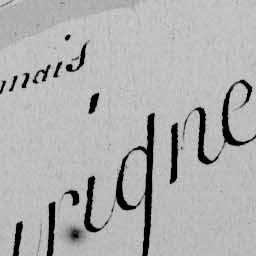 nnais
urigne